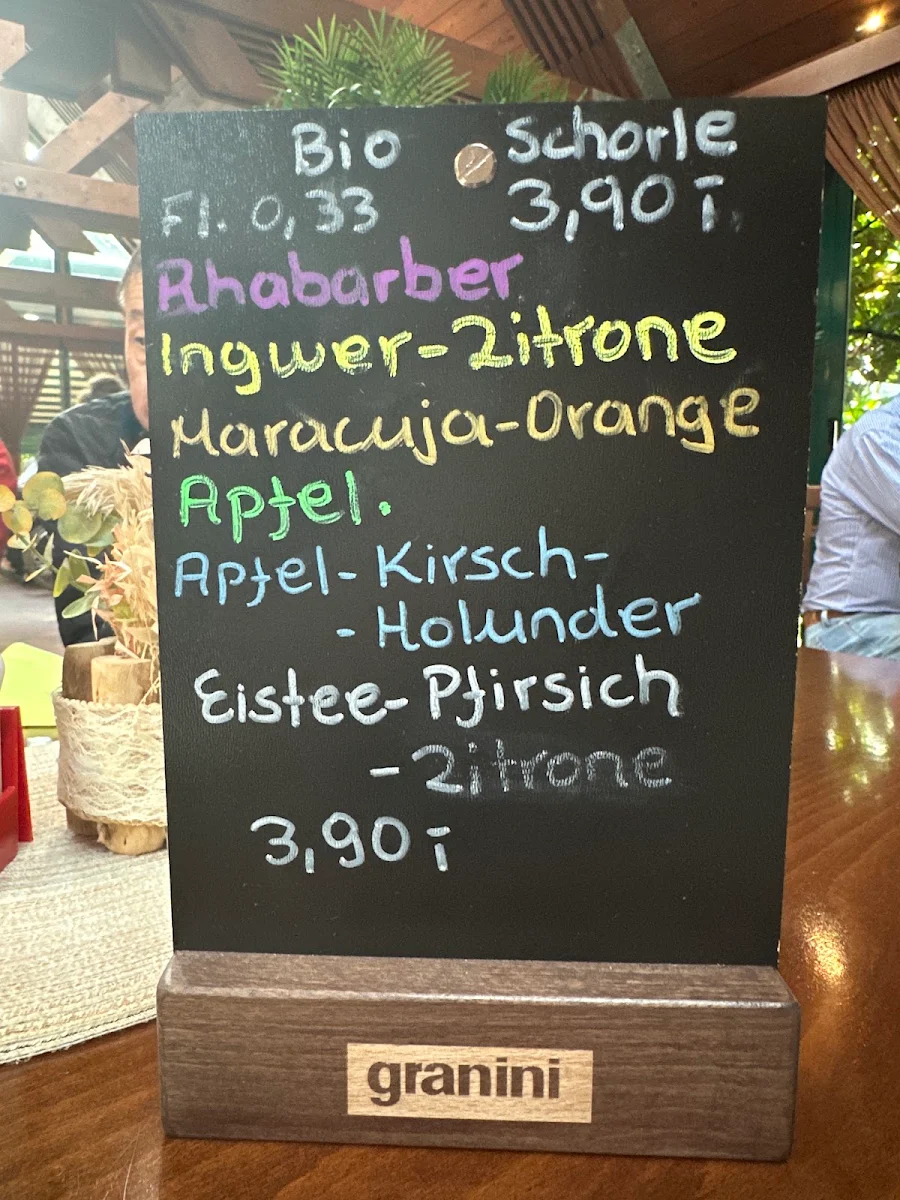 Bio Schorle
Fl. 0,33 3,90 ī.
Rhabarber
Ingwer-Zitrone
Maracuja-Orange
Apfel.
Apfel-Kirsch-
-Holunder
Eistee-Pfirsich
-Zitrone
3,90 ī
granini